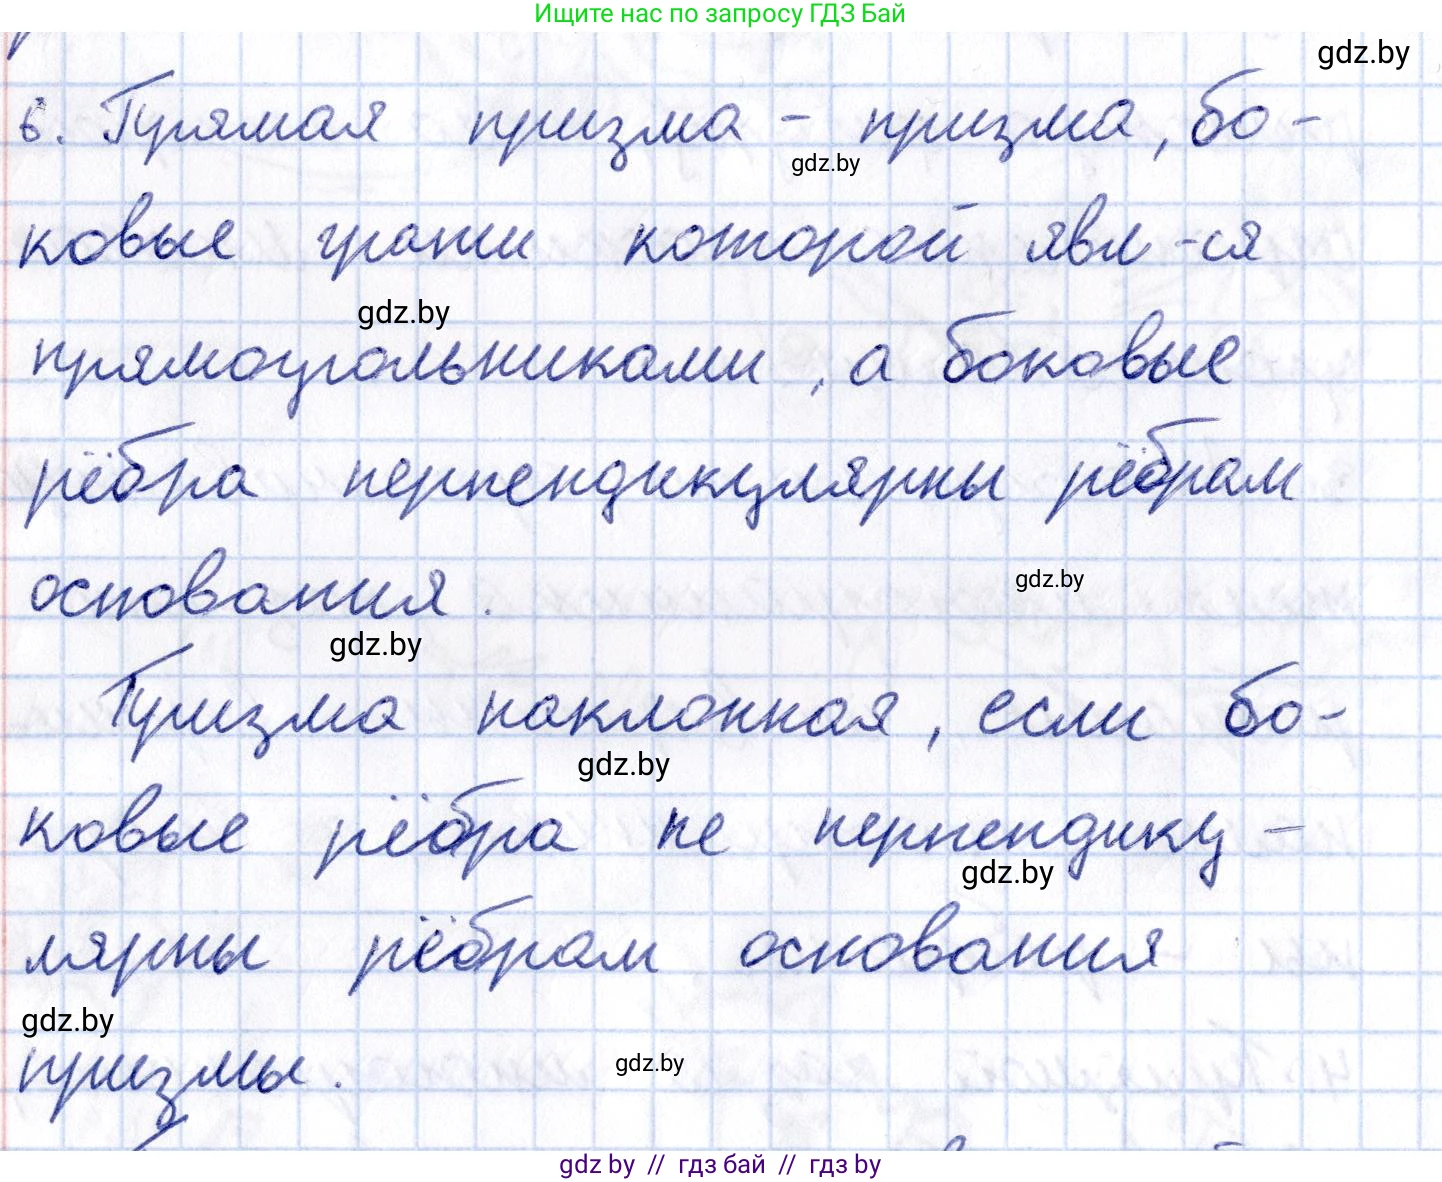 Ищите нас по запросу ГДЗ Бай
gdz.by
6. Прямая призма - призма, бо-
gdz.by
ковые грани которой явл-ся
gdz.by
прямоугольниками, а боковые
рёбра перпендикулярны рёбрам
основания.
gdz.by
gdz.by
Призма наклонная, если бо-
gdz.by
ковые рёбра не перпендику-
gdz.by
лярны рёбрам основания
gdz.by
призмы.
gdz.by
gdz by // гдз бай // гдз by